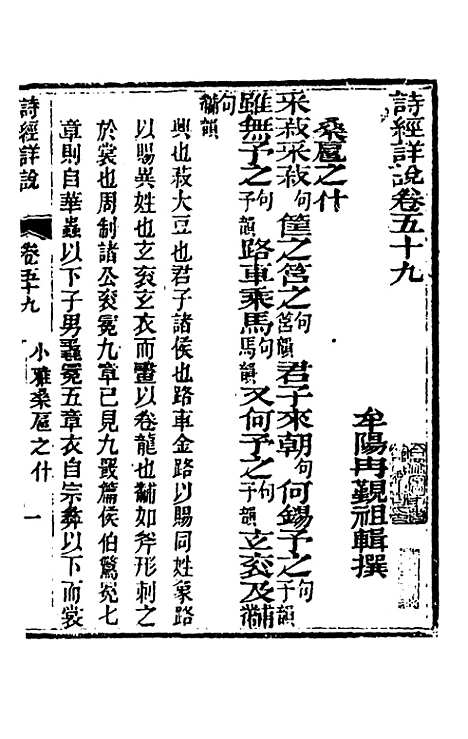 詩經詳說卷五十九
牟陽冉覲祖輯撰
桑扈之什
采菽采菽句筐之筥之句筥韻君子來朝句何錫予之句予韻
雖無予之句予韻路車乘馬句馬韻又何予之句予韻玄袞及黼
句黼韻
興也菽大豆也君子諸侯也路車金路以賜同姓象路
以賜異姓也玄袞玄衣而畫以卷龍也黼如斧形刺之
於裳也周制諸公袞冕九章已見九罭篇侯伯鷩冕七
章則自華蟲以下子男毳冕五章衣自宗彝以下而裳
詩經詳說
卷五十九
小雅桑扈之什
一